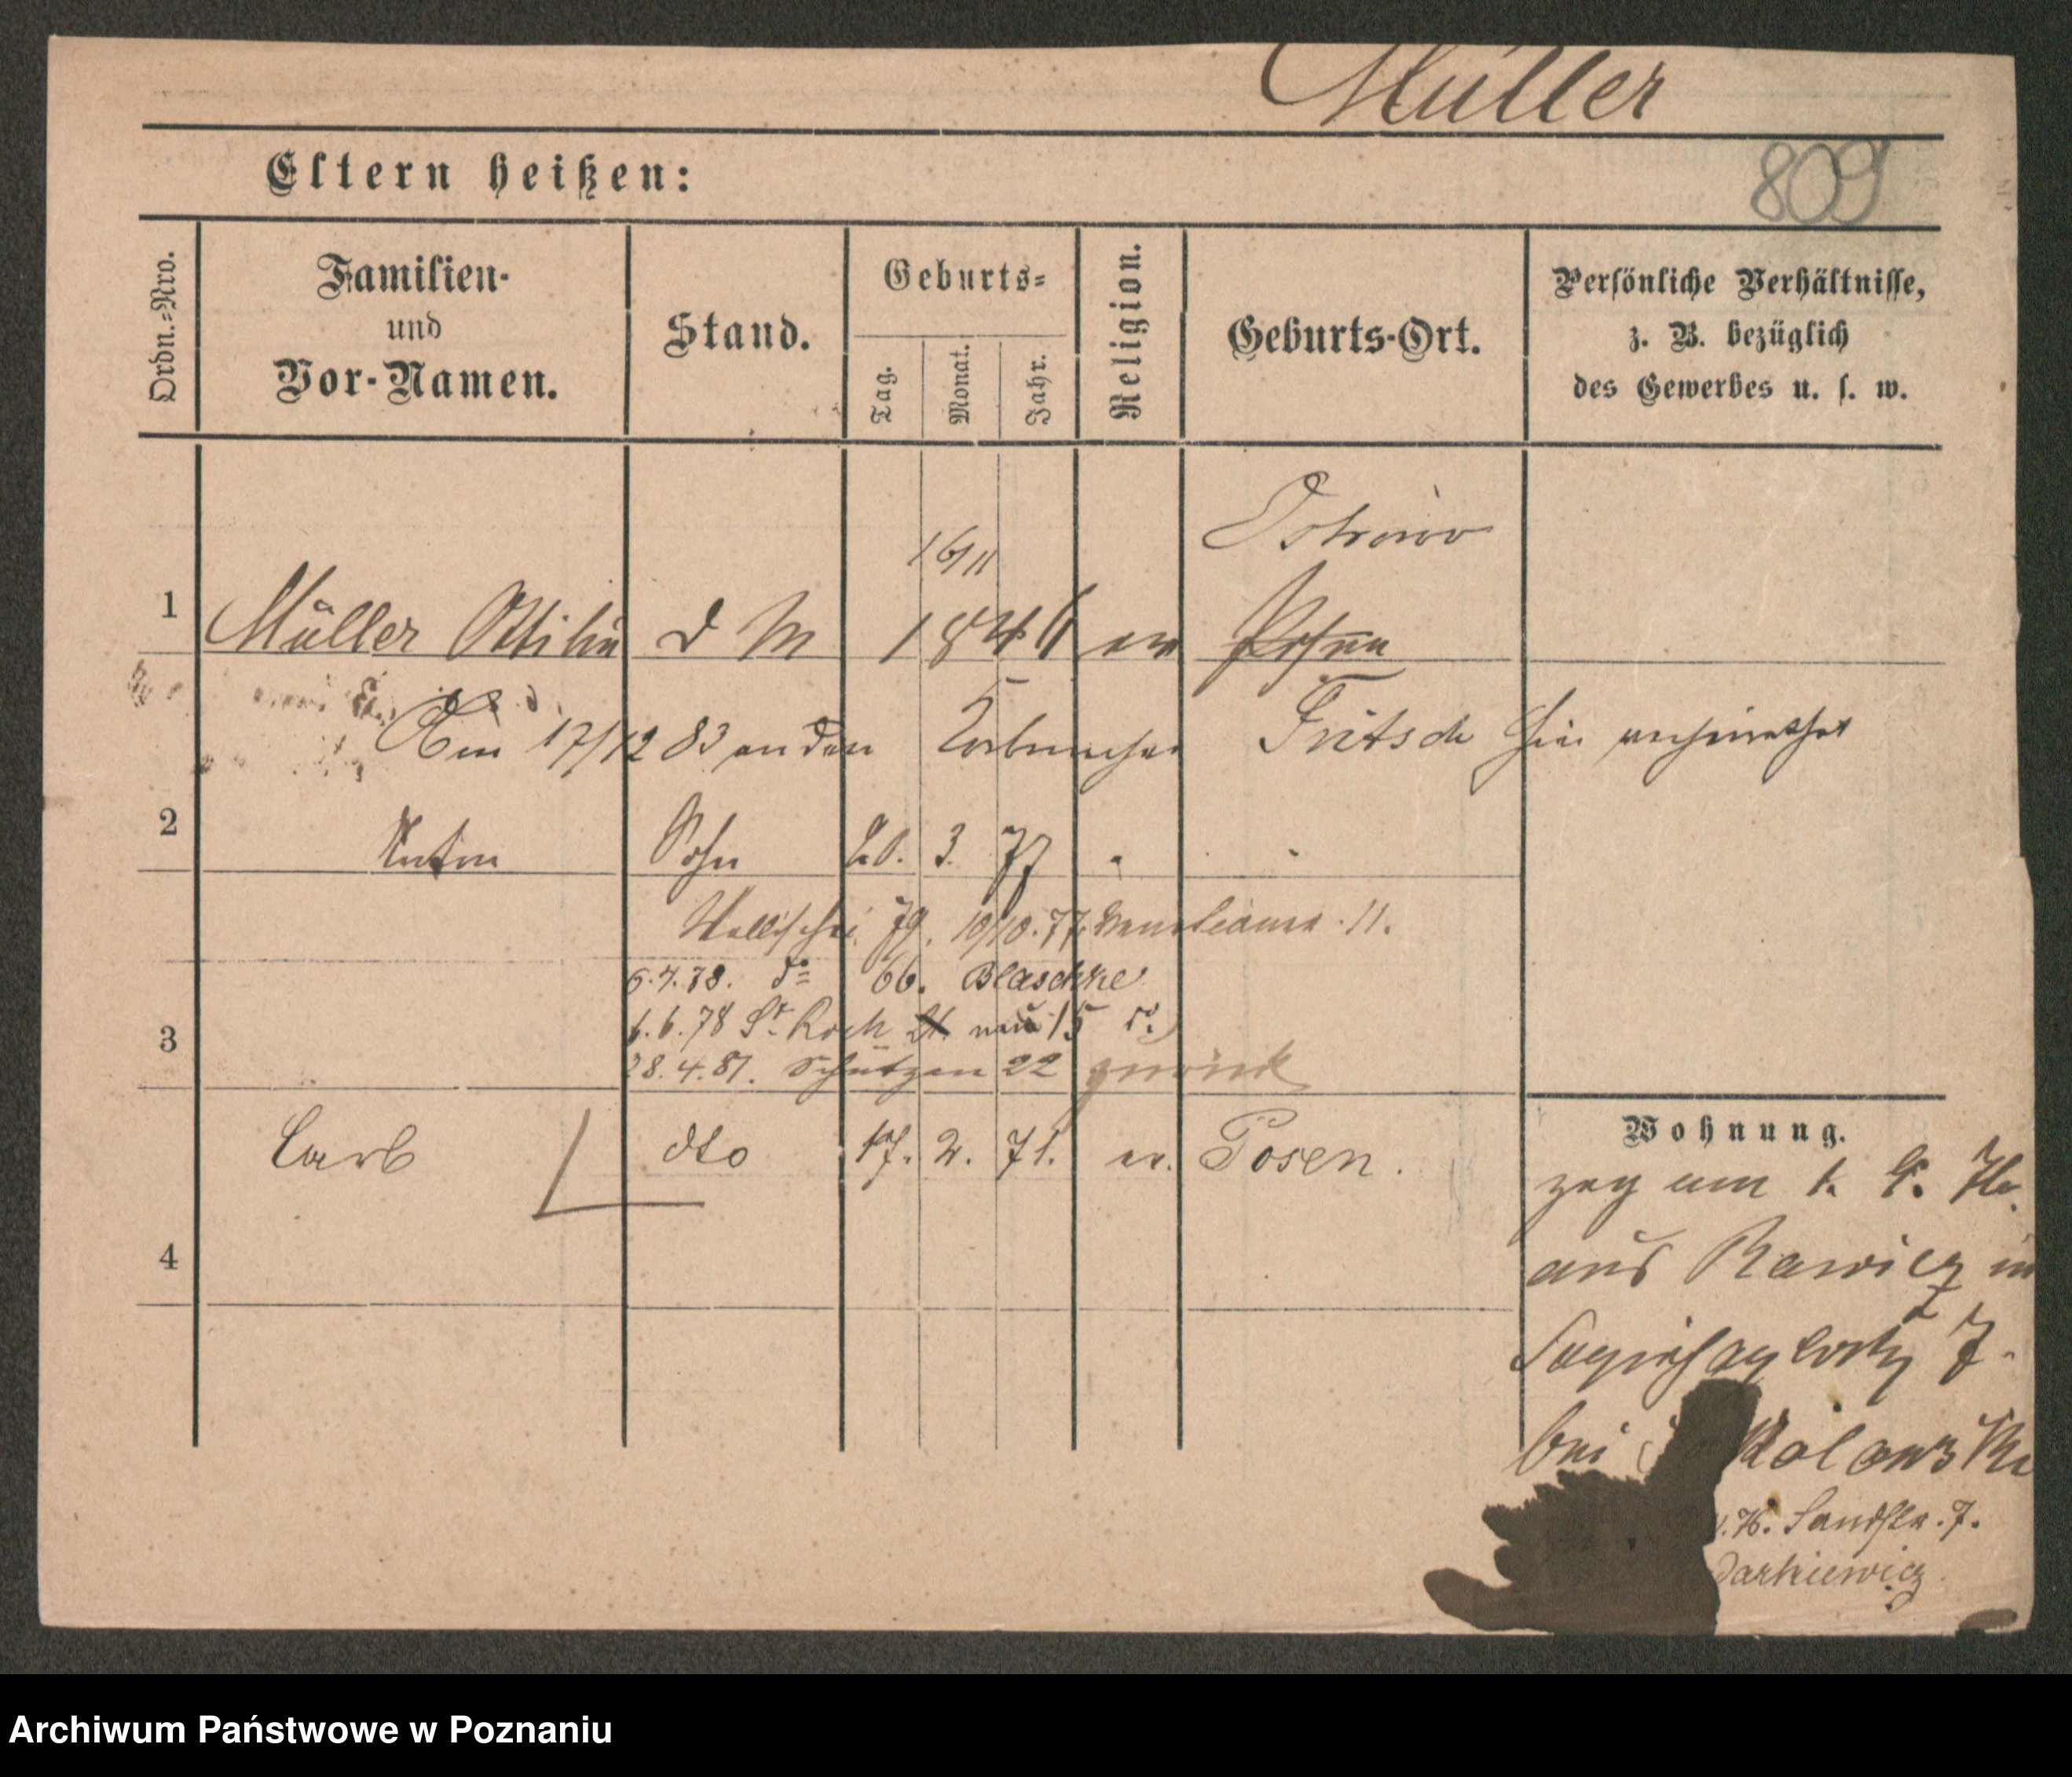 Müller
809
Eltern heißen:
Ordn.-Nro.
Familien-
und
Vor-Namen.
Stand.
Geburts-
Tag.
Monat.
Jahr.
Religion.
Geburts-Ort.
Persönliche Verhältnisse,
z. B. bezüglich
des Gewerbes u. s. w.
16/11
Ostrowo
1 Müller Ottilie d M 1846 ev Posen
Am 17/12 83 an den Fritsch hier verheirathet
2 Anton Sohn 20. 3. 77 "
Wallischei 79. 10/10.77. 11.
6.4.78. do 66. Blaschke
6.6.78 St. Roch 21 neu 15 do
3
28.4.81. Schützen 22 zurück
Carl dto 17. 2. 71. ev. Posen.
4
Wohnung.
zog am 1. 4. 76.
aus Rawicz in
7.
bei
Sandstr. 7.
Archiwum Państwowe w Poznaniu